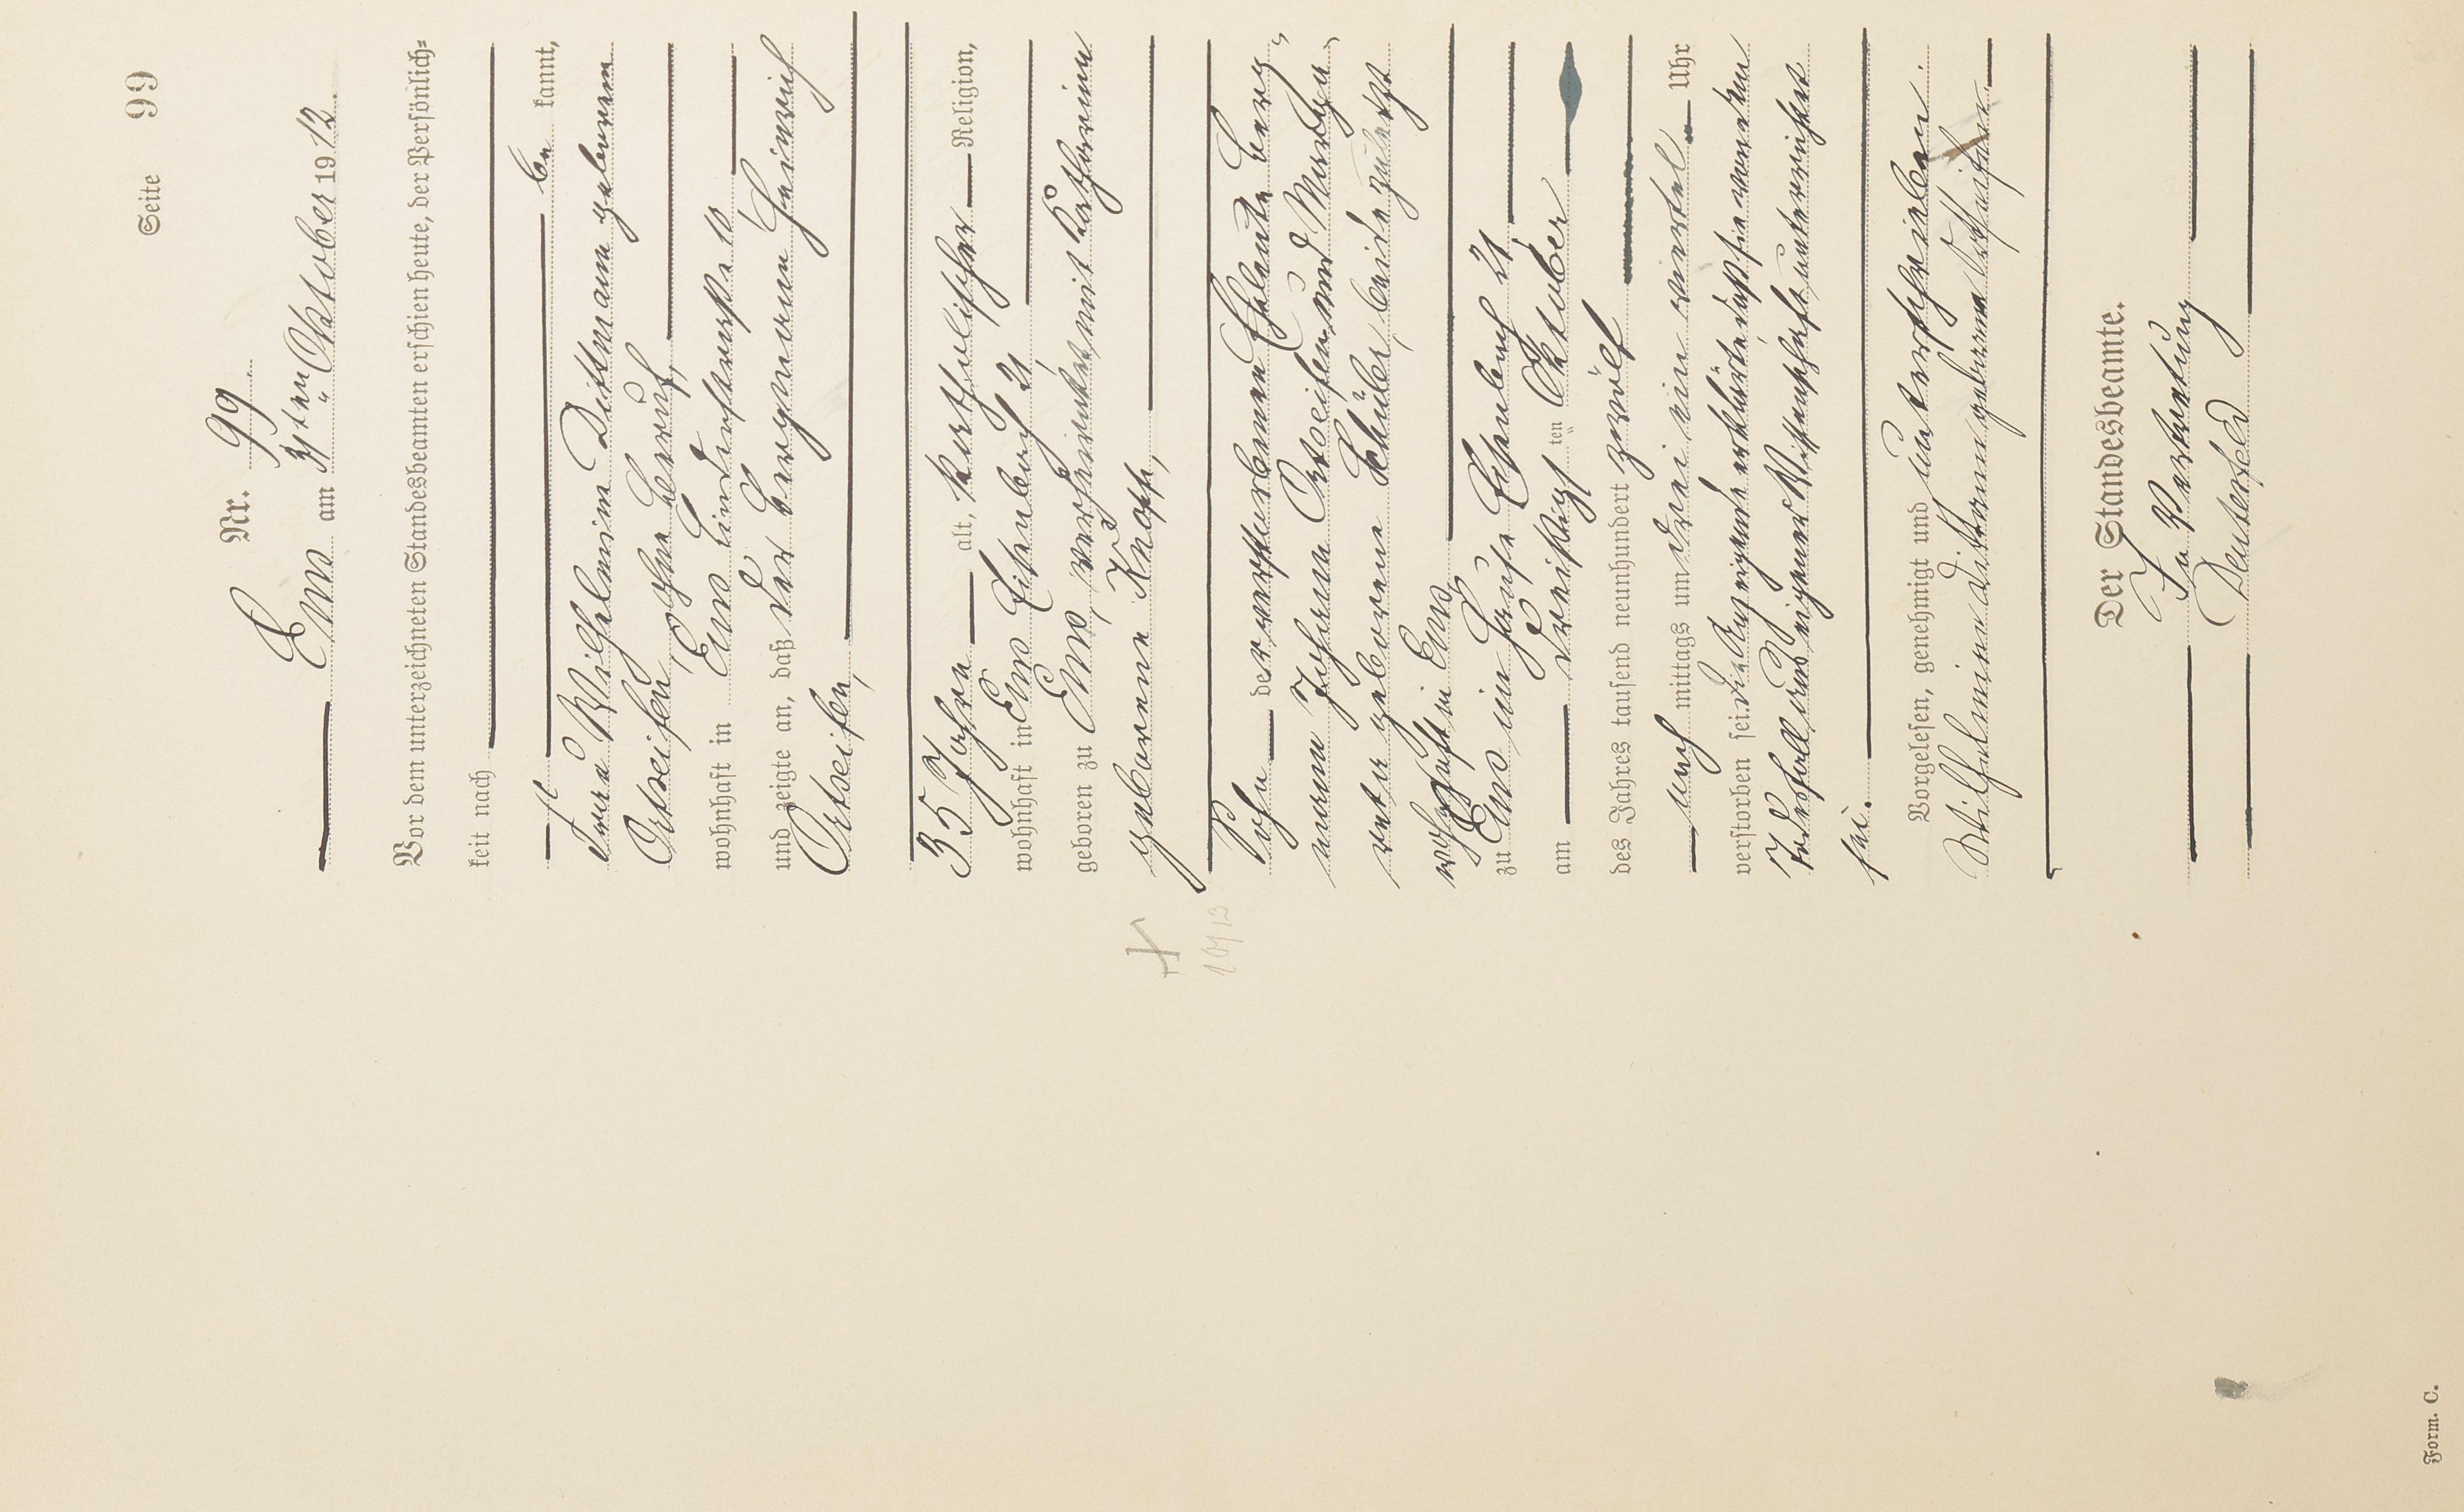 Seite 99
Nr. 99
Ems am 31ten Oktober 1912.
Vor dem unterzeichneten Standesbeamten erschien heute, der Persönlich=
keit nach
be kannt,
Frau Wilhelmine Dittmann geborenen
Ortseifen, ohne Beruf,
wohnhaft in Ems Lindenstraße 10
und zeigte an, daß der Bergmann Heinrich
Ortseifen,
35 Jahre alt, katholischer Religion,
wohnhaft in Ems Eisenbach 21,
geboren zu Ems, verheiratet mit Katharina
geborene Knopp,
Sohn der verstorbenen Eheleute Berg=
mann Johann Ortseifen und Marga=
reta geborene Schüler, beide zuletzt
wohnhaft in Ems,
zu Ems im Hause Eisenbach 21,
am dreißigsten Oktober
des Jahres tausend neunhundert zwölf
nach mittags um drei ein viertel Uhr
verstorben sei. Die Anzeigende erklärte, daß sie von dem
Todesfall aus eigener Wissenschaft unterrichtet
sei.
Vorgelesen, genehmigt und unterschrieben.
Wilhelmine Dittmann geborene Ortseifen
Der Standesbeamte.
In Vertretung
Deuterfeld
1913
Form. C.